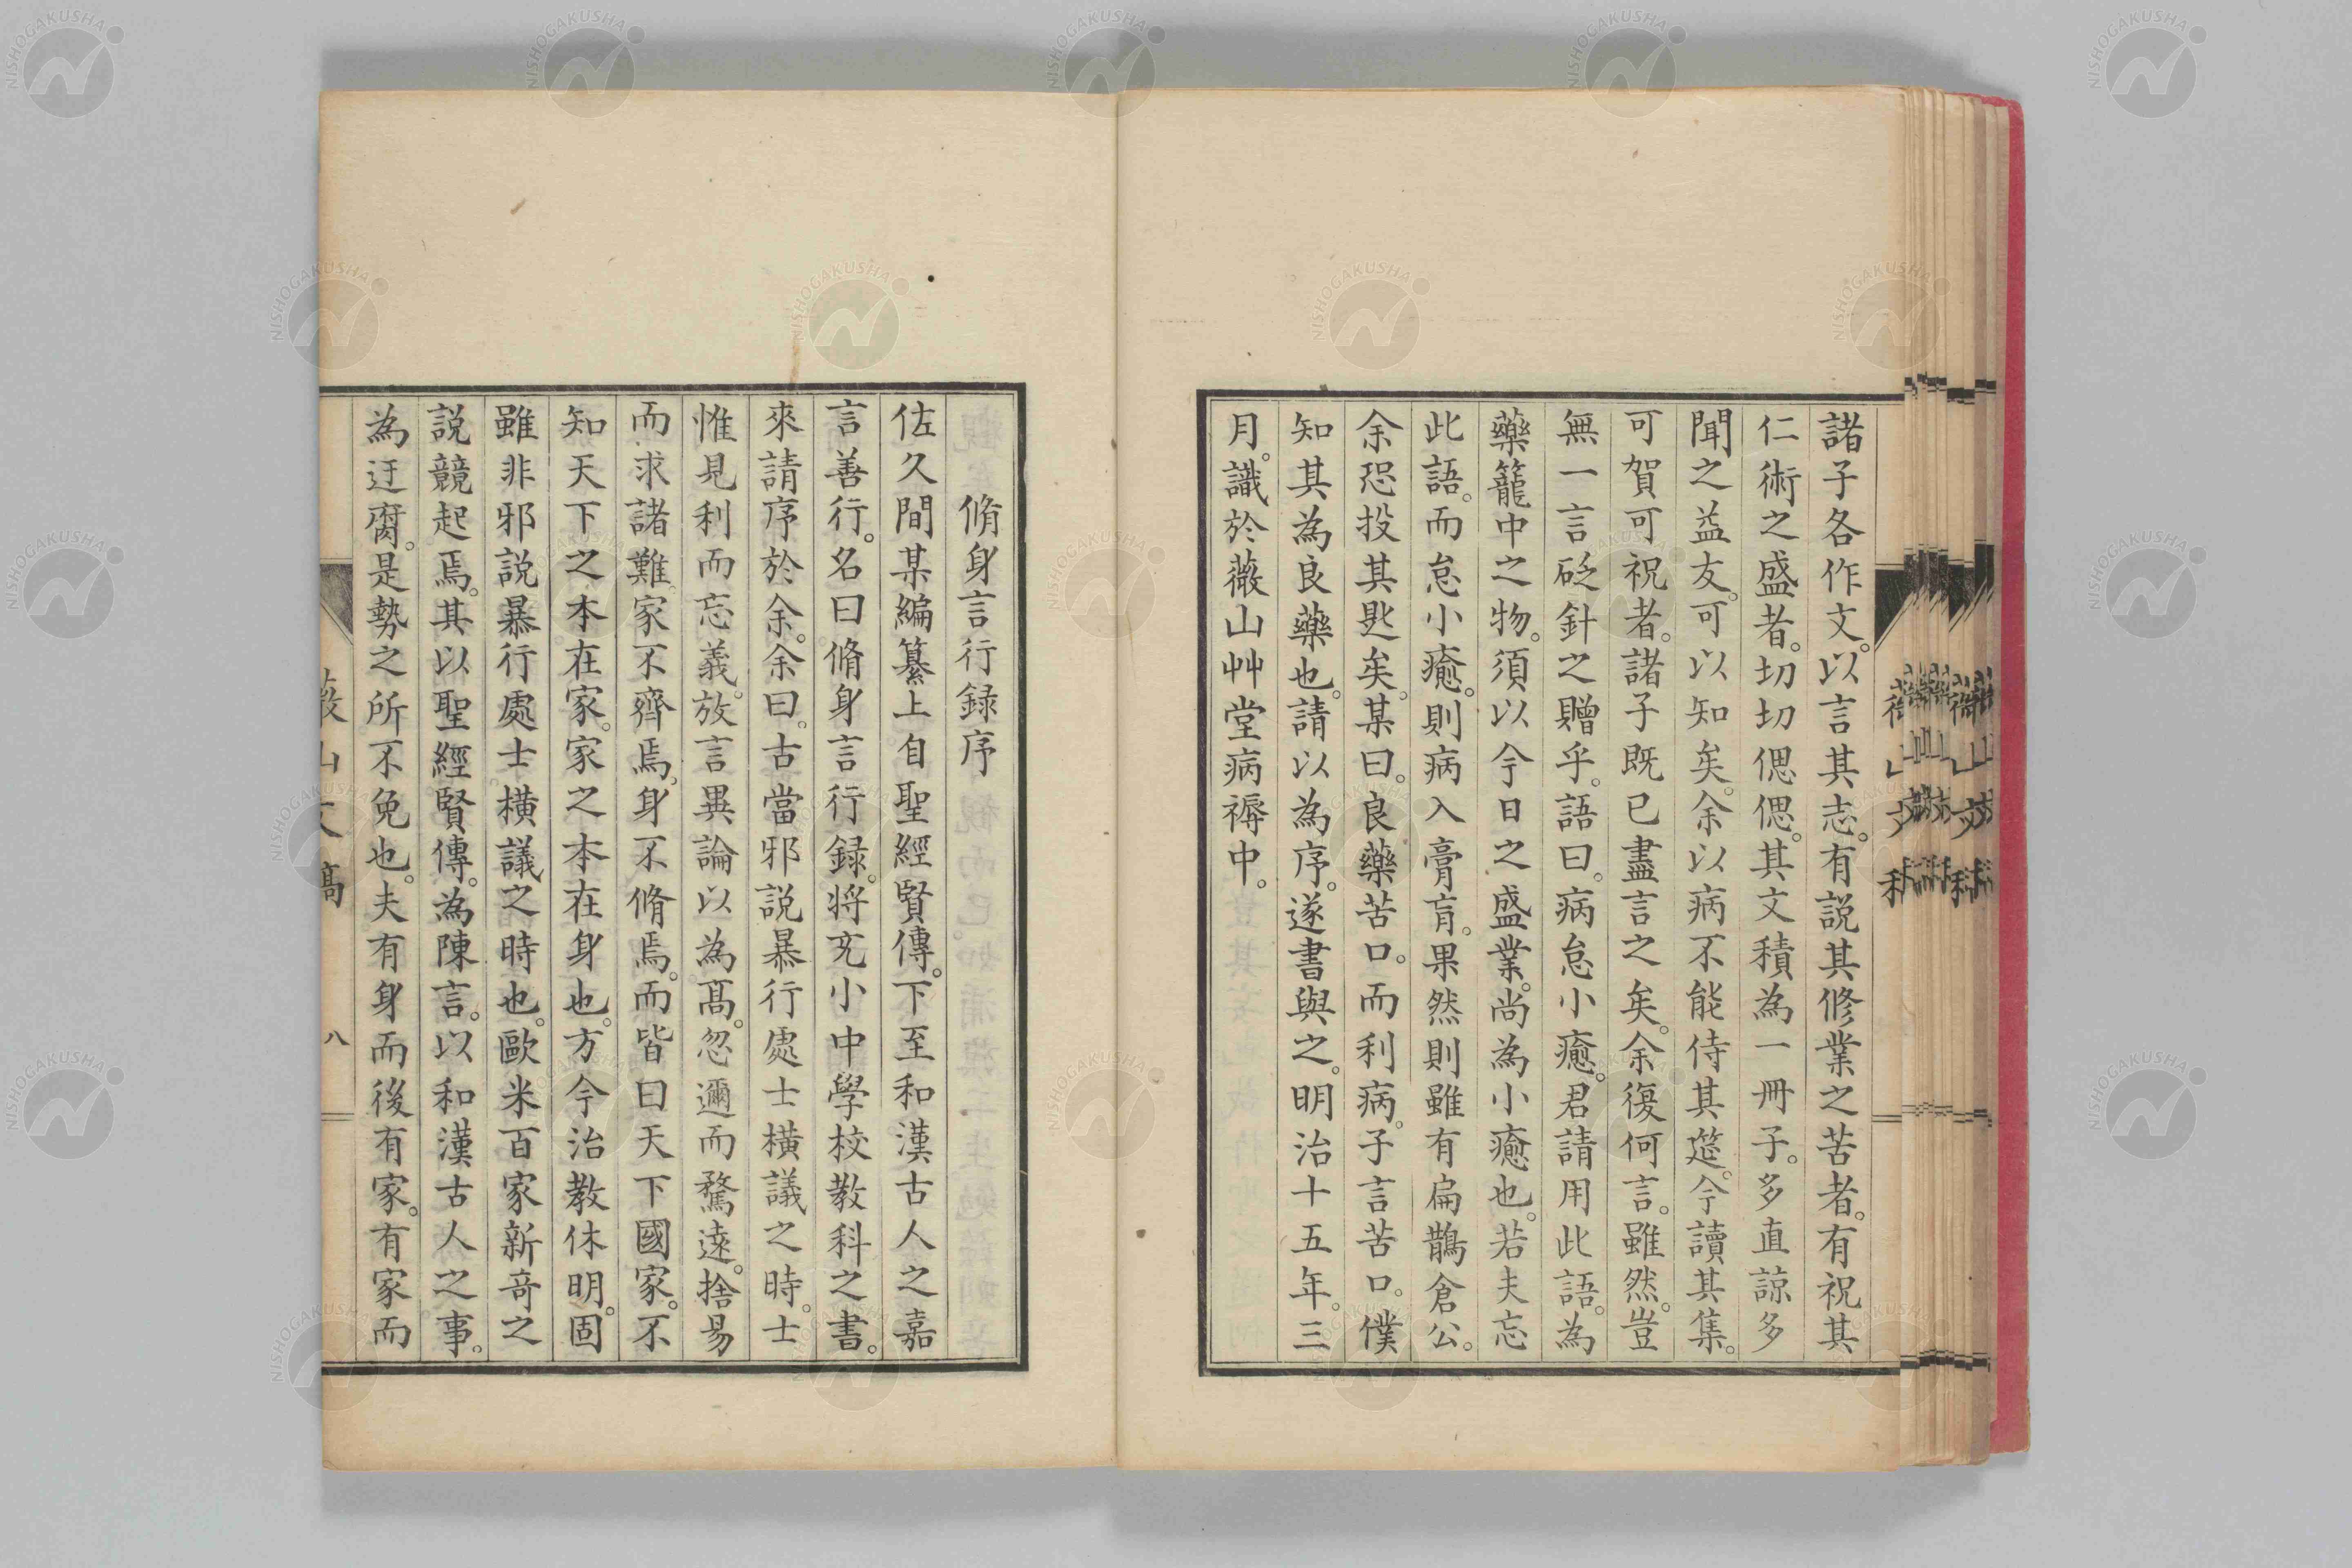 諸子各作文。以言其志。有説其修業之苦者。有祝其
仁術之盛者。切切偲偲。其文積為一冊子。多直諒多
聞之益友。可以知矣。余以病不能侍其筵。今讀其集。
可賀可祝者。諸子既已盡言之矣。余復何言。雖然。豈
無一言砭針之贈乎。語曰。病怠小癒。君請用此語。為
藥籠中之物。須以今日之盛業。尚為小癒也。若夫忘
此語。而怠小癒。則病入膏肓。果然則雖有扁鵲倉公。
余恐投其匙矣。某曰。良藥苦口。而利病。子言苦口。僕
知其為良藥也。請以為序。遂書與之。明治十五年。三
月。識於薇山艸堂病褥中。
脩身言行録序
佐久間某編纂上自聖經賢傳。下至和漢古人之嘉
言善行。名曰脩身言行録。将充小中學校教科之書。
來請序於余。余曰。古當邪説暴行處士橫議之時。士
惟見利而忘義。放言異論以為髙。忽邇而騖遠。捨易
而求諸難。家不齊焉。身不脩焉。而皆曰天下國家。不
知天下之本。在家。家之本在身也。方今治教休明。固
雖非邪説暴行處士橫議之時也。歐米百家新奇之
説競起焉。其以聖經賢傳。為陳言。以和漢古人之事。
為迂腐。是勢之所不免也。夫有身而後有家。有家而
薇山文稿
八
NISHOGAKUSHA